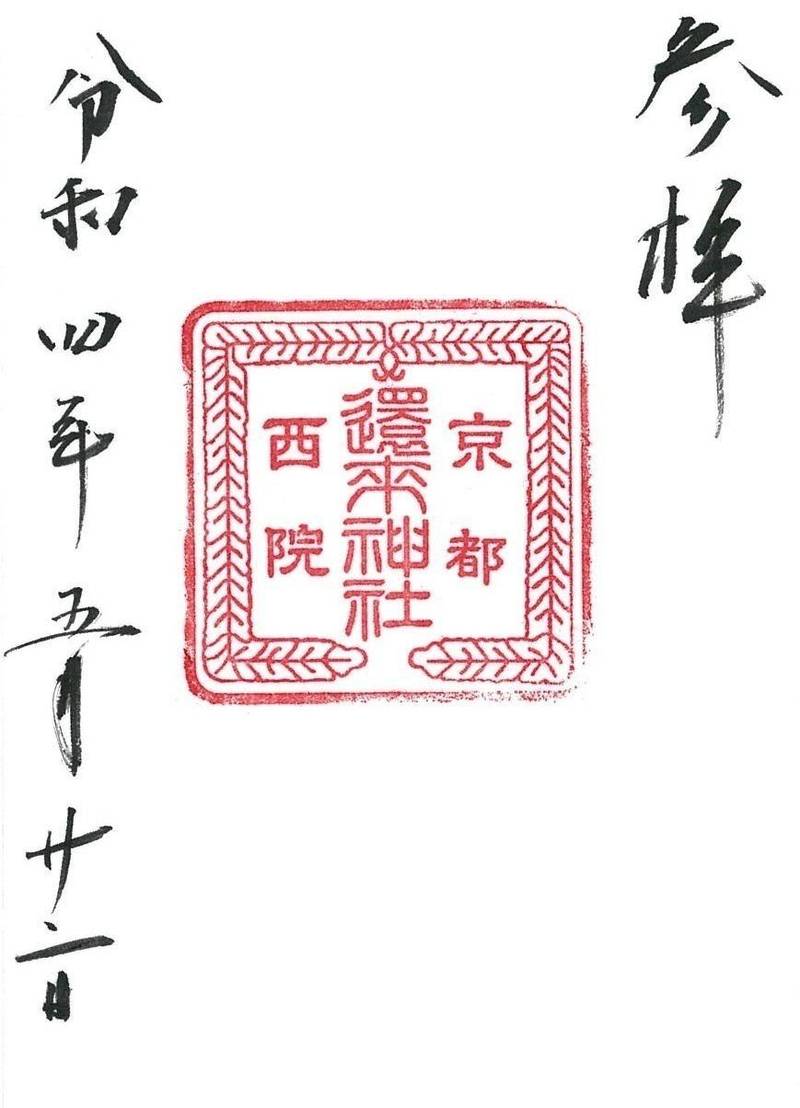 参拝
京都
還来神社
西院
令和四年五月廿二日